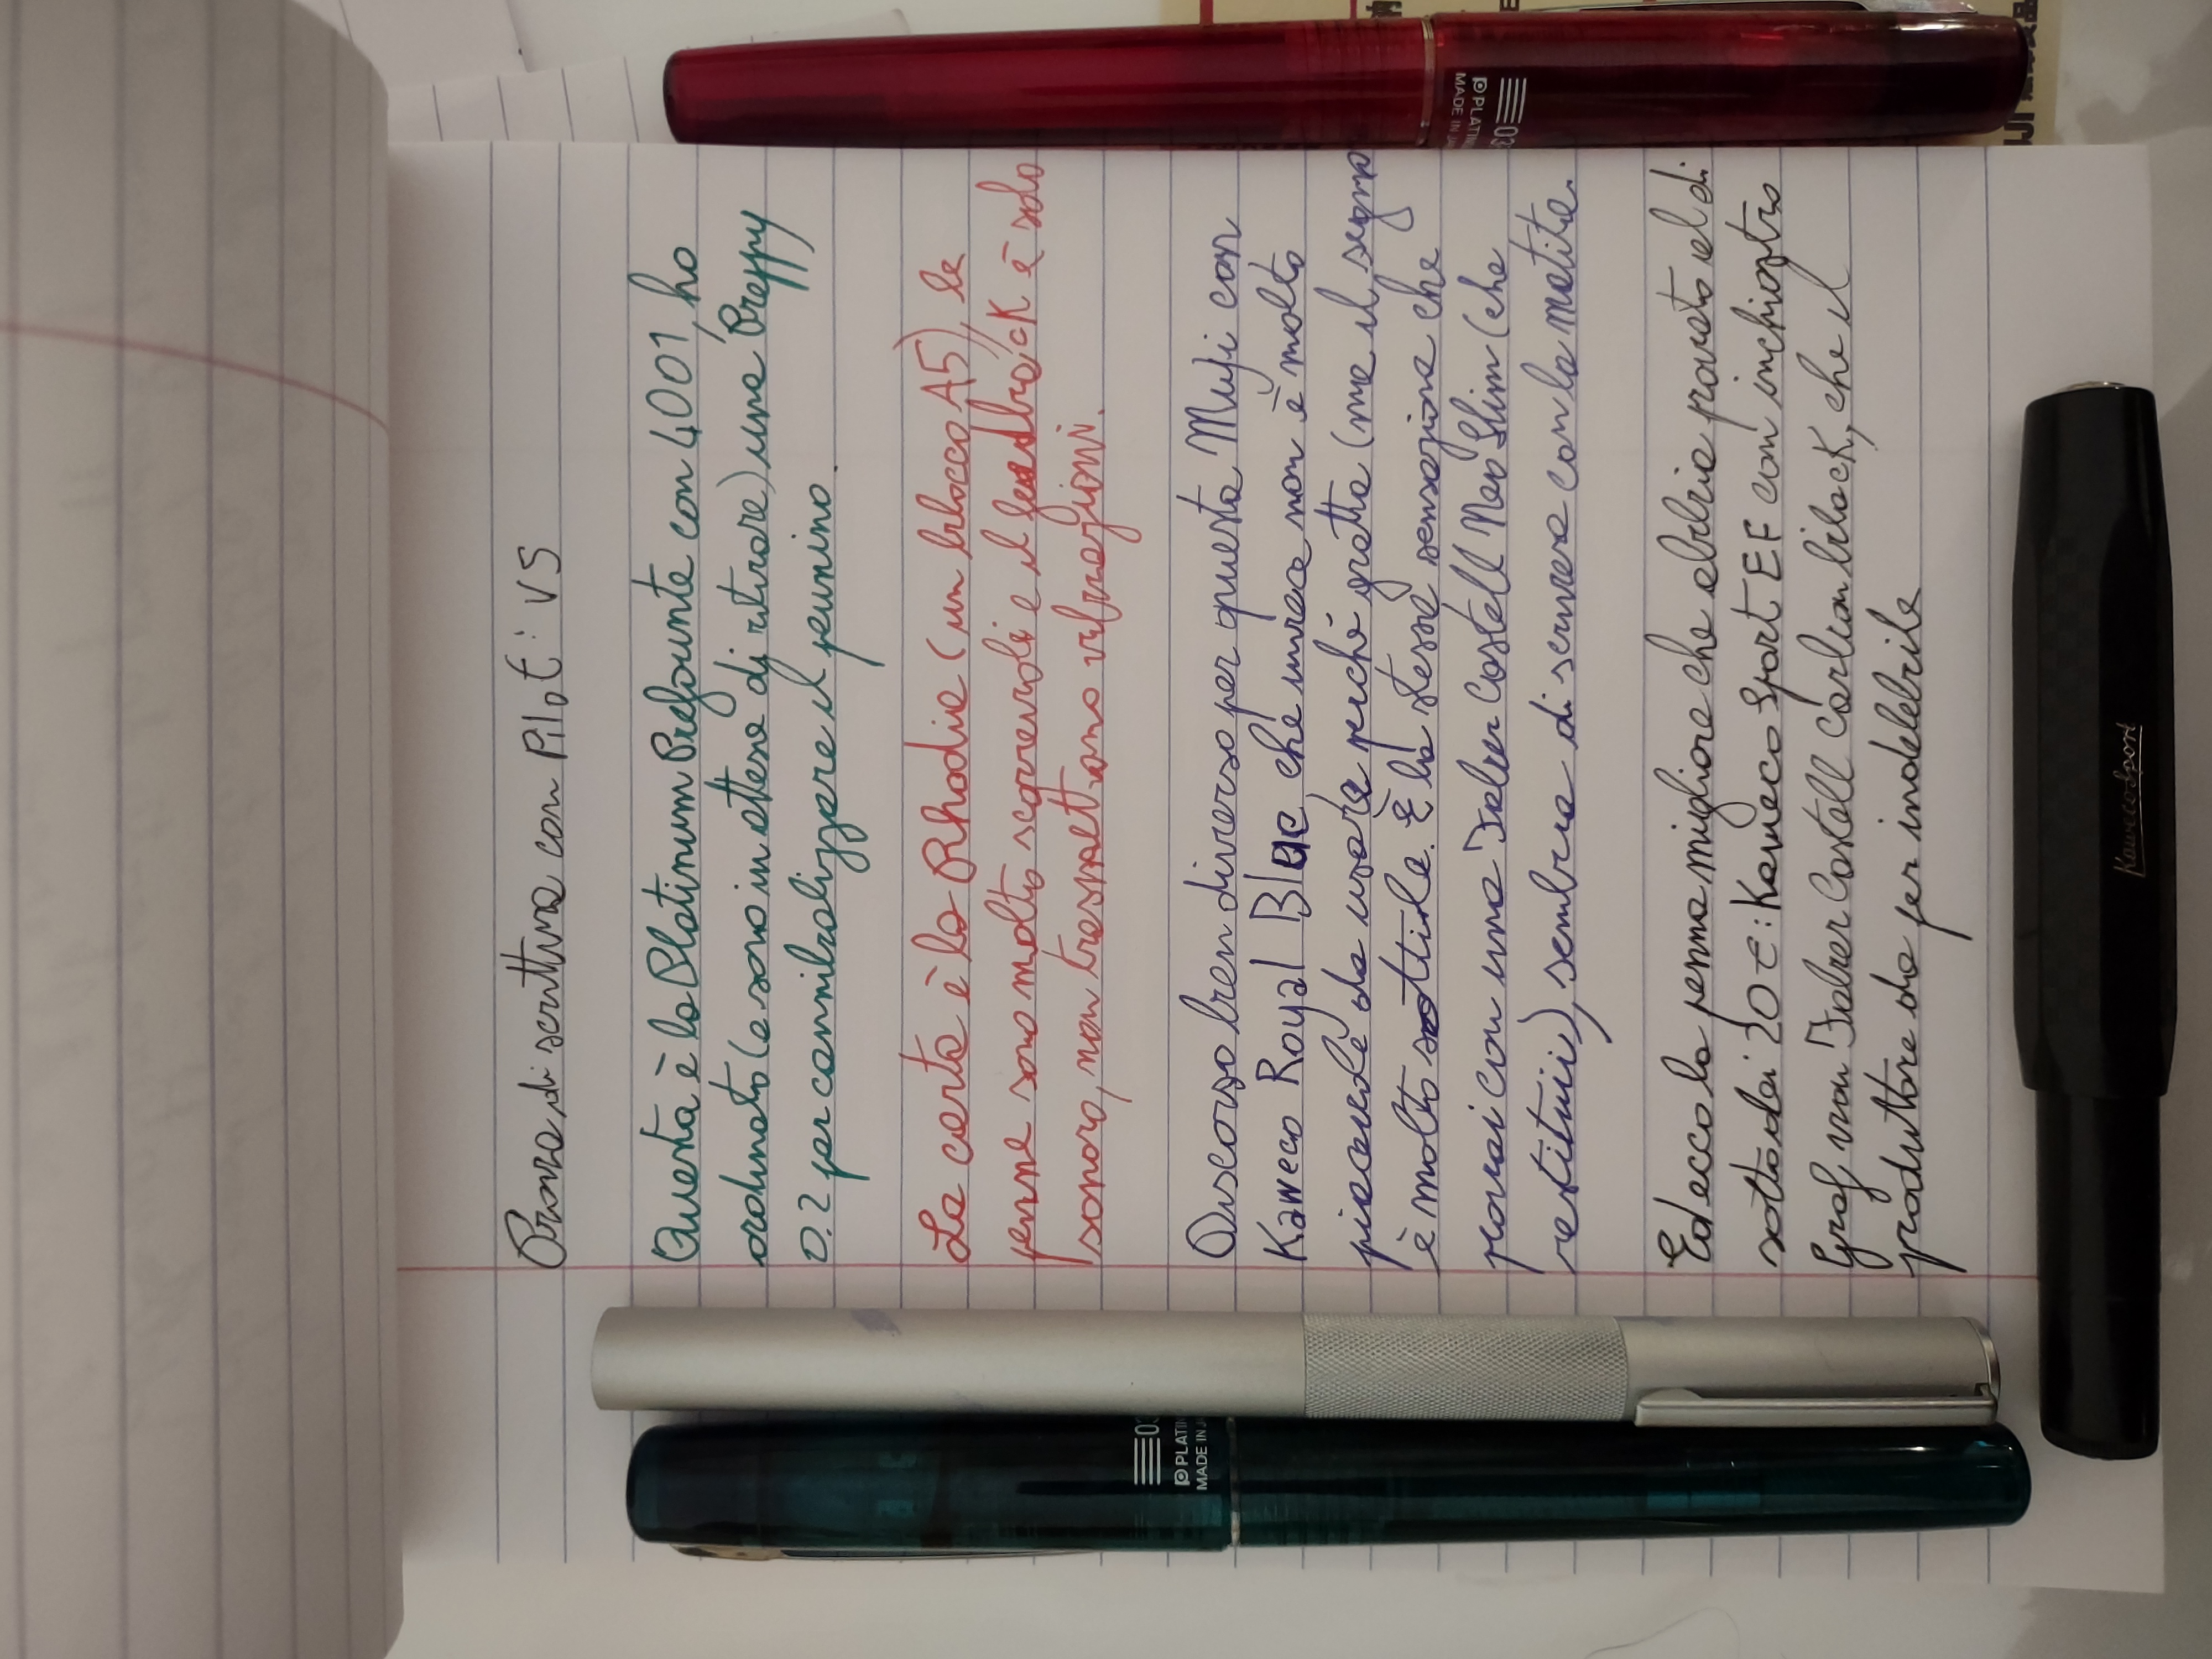 Prova di scrittura con Pilot: V5
Questa è la Platinum Prefounte con 4001, ho
ordinato (e sono in attesa di ritirare) una Preppy
0.2 per cannibalizzare il pennino.
La carta è la Rhodia (un blocco A5), le
penne sono molto scorrevoli e il feedback è solo
sonoro, non trasmettono vibrazioni.
Discorso ben diverso per questa Muji con
Kaweco Royal Blue che invece non è molto
piacevole da usare perché gratta (ma il segno
è molto sottile. È la stessa sensazione che
provai con una Faber Castell Neo Slim (che
restituii), sembra di scrivere con la matita.
Ed ecco la penna migliore che abbia provato al di
sotto dei 20 €: Kaweco Sport EF con inchiostro
Graf von Faber Castell carbon black, che il
produttore da per indelebile
PLATIN
MADE IN JA
03
03
PLATIN
MADE IN JA
Kaweco Sport